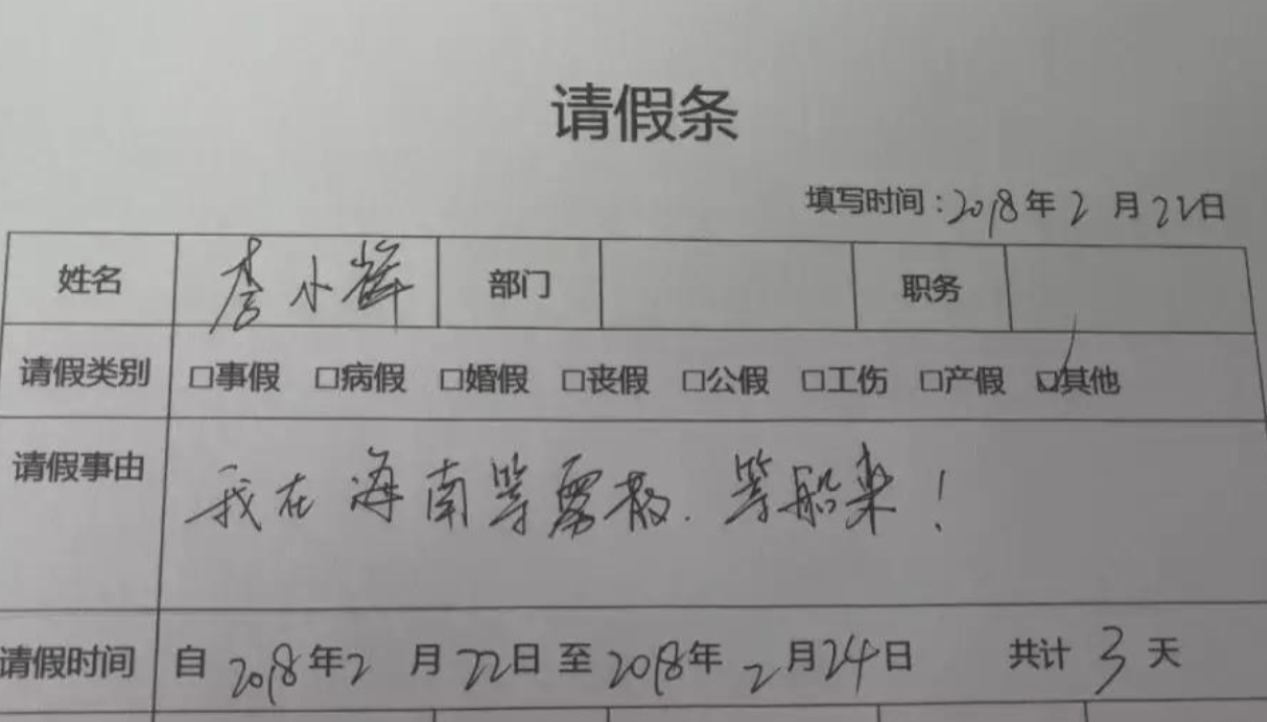 请假条
填写时间：2018年2月22日
姓名 李小辉 部门 职务
请假类别 □事假 □病假 □婚假 □丧假 □公假 □工伤 □产假 ☑其他
请假事由 我在海南等雾散.等船来！
请假时间 自2018年2月22日至2018年2月24日 共计3天